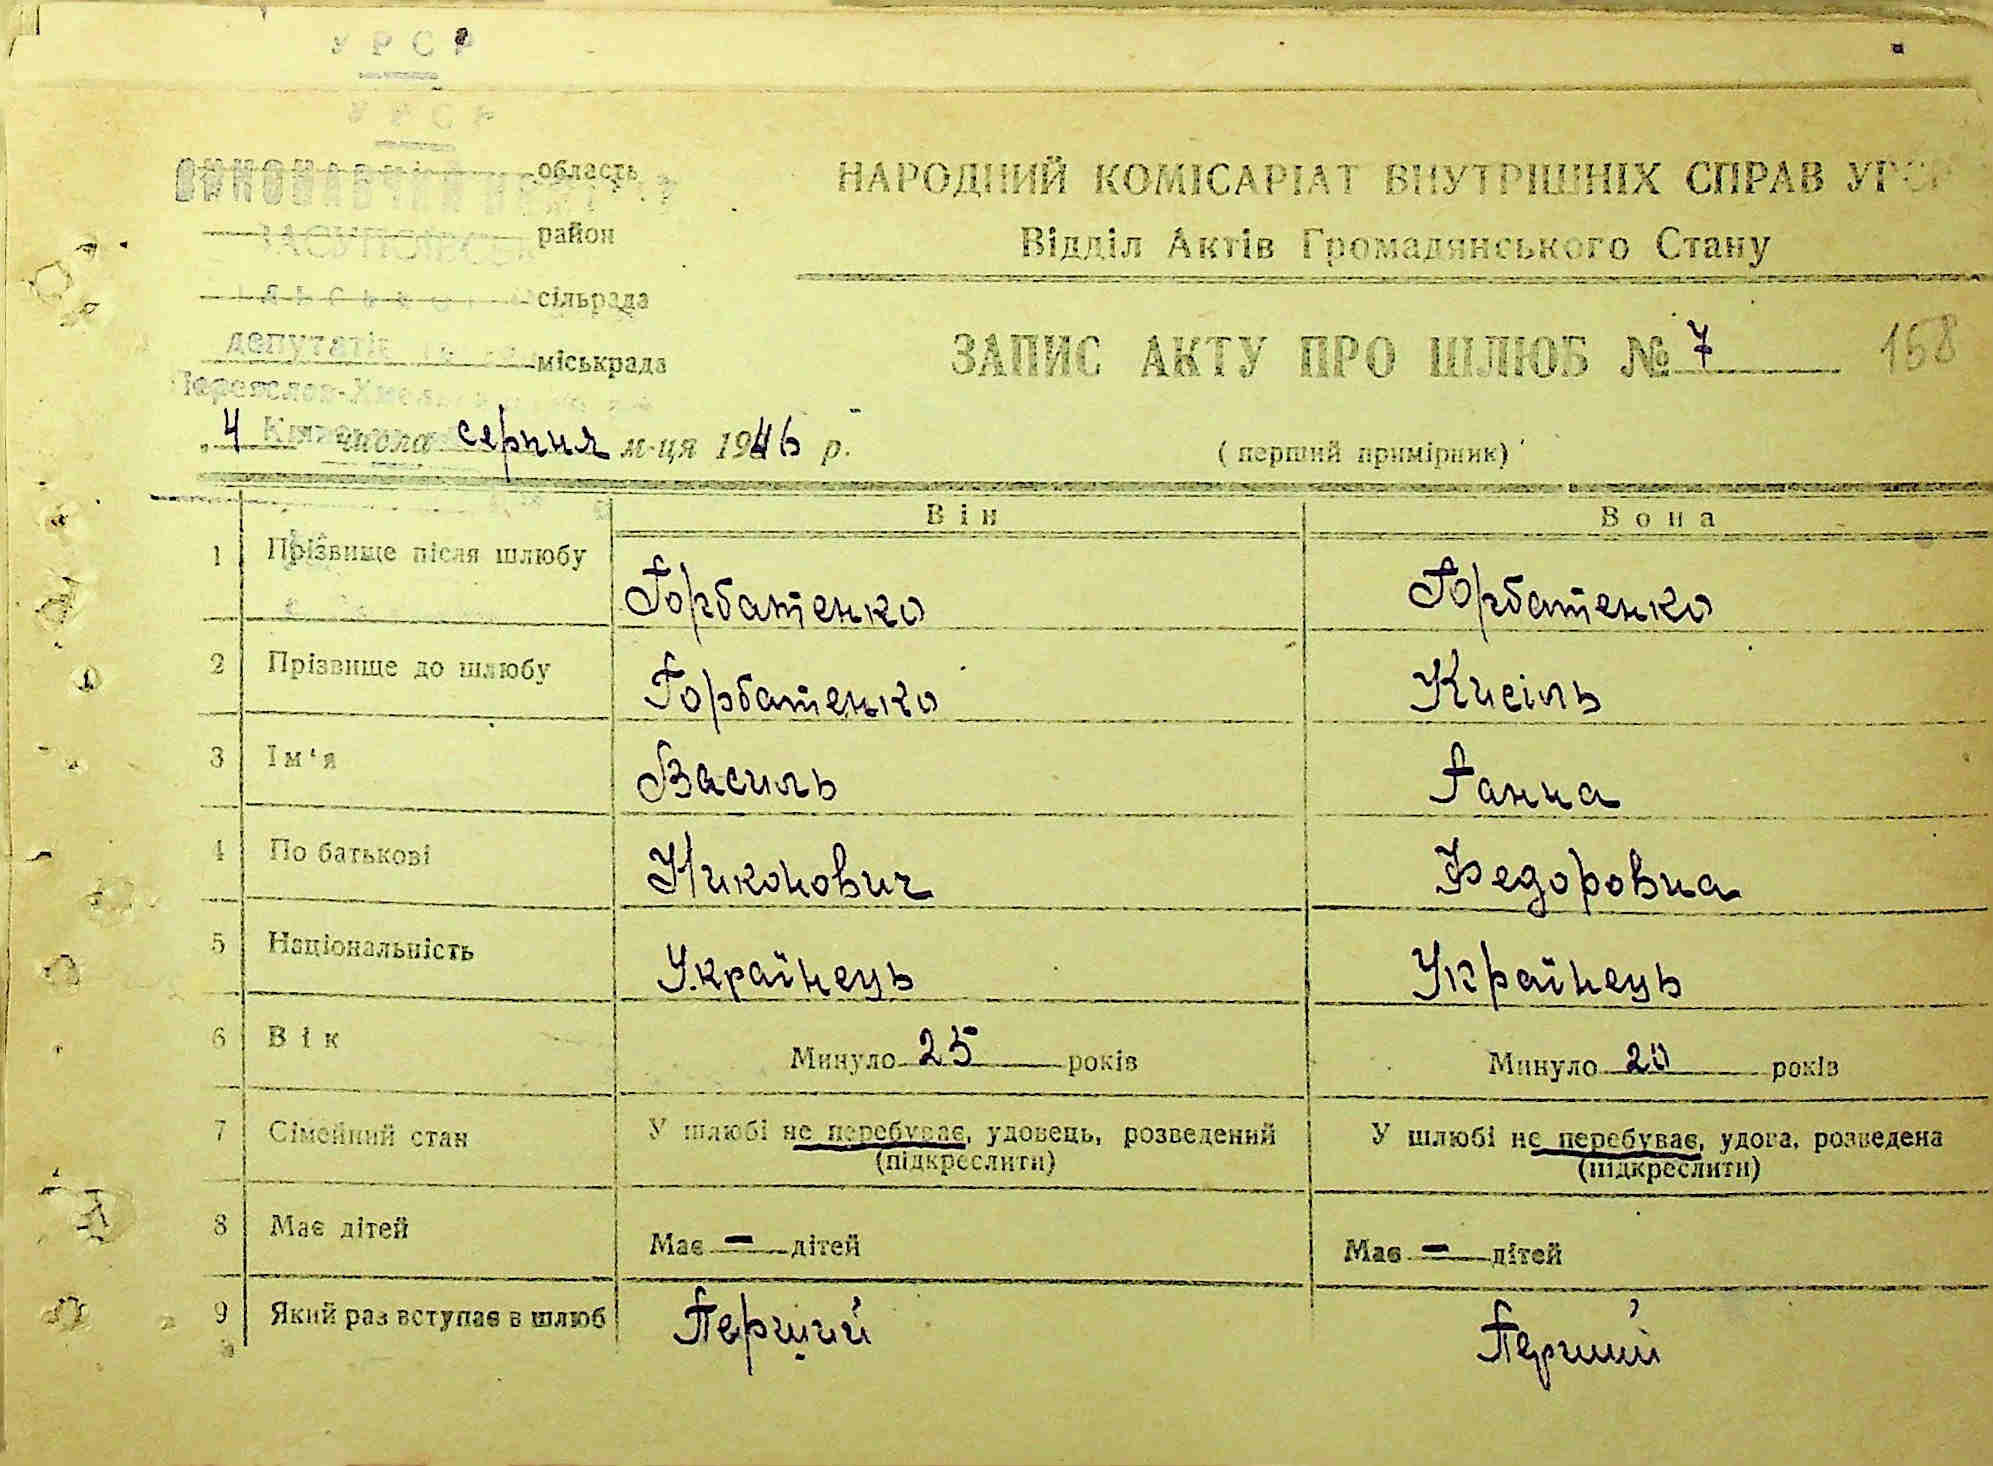 У Р С Р
У Р С Р
ВИКОНАВЧИЙ область
район
сільрада
депутатів міськрада
Переяслав-Хмел
„ 4 числа серпня м-ця 1946 р.
НАРОДНИЙ КОМІСАРІАТ ВНУТРІШНІХ СПРАВ УРСР
Відділ Актів Громадянського Стану
ЗАПИС АКТУ ПРО ШЛЮБ № 7 168
(перший примірник)
Він Вона
1 Прізвище після шлюбу Горбатенко Горбатенко
2 Прізвище до шлюбу Горбатенко Кисіль
3 Ім'я Василь Ганна
4 По батькові Никонович Федоровна
5 Національність Українець Українець
6 Вік Минуло 25 років Минуло 20 років
7 Сімейний стан У шлюбі не перебуває, удовець, розведений У шлюбі не перебуває, удова, розведена
(підкреслити) (підкреслити)
8 Має дітей Має – дітей Має – дітей
9 Який раз вступає в шлюб Перший Перший